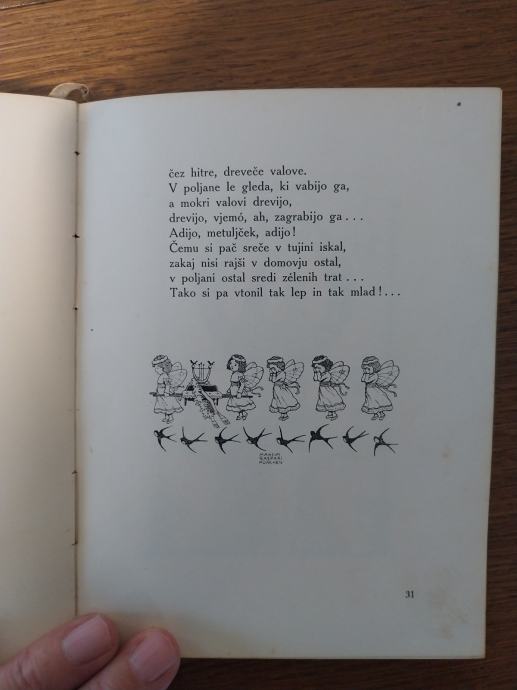 čez hitre, dreveče valove.
V poljane le gleda, ki vabijo ga,
a mokri valovi drevijo,
drevijo, vjemó, ah, zagrabijo ga...
Adijo, metuljček, adijo!
Čemu si pač sreče v tujini iskal,
zakaj nisi rajši v domovju ostal,
v poljani ostal sredi zélenih trat...
Tako si pa vtonil tak lep in tak mlad!...
MAKSIM
GASPARI
31